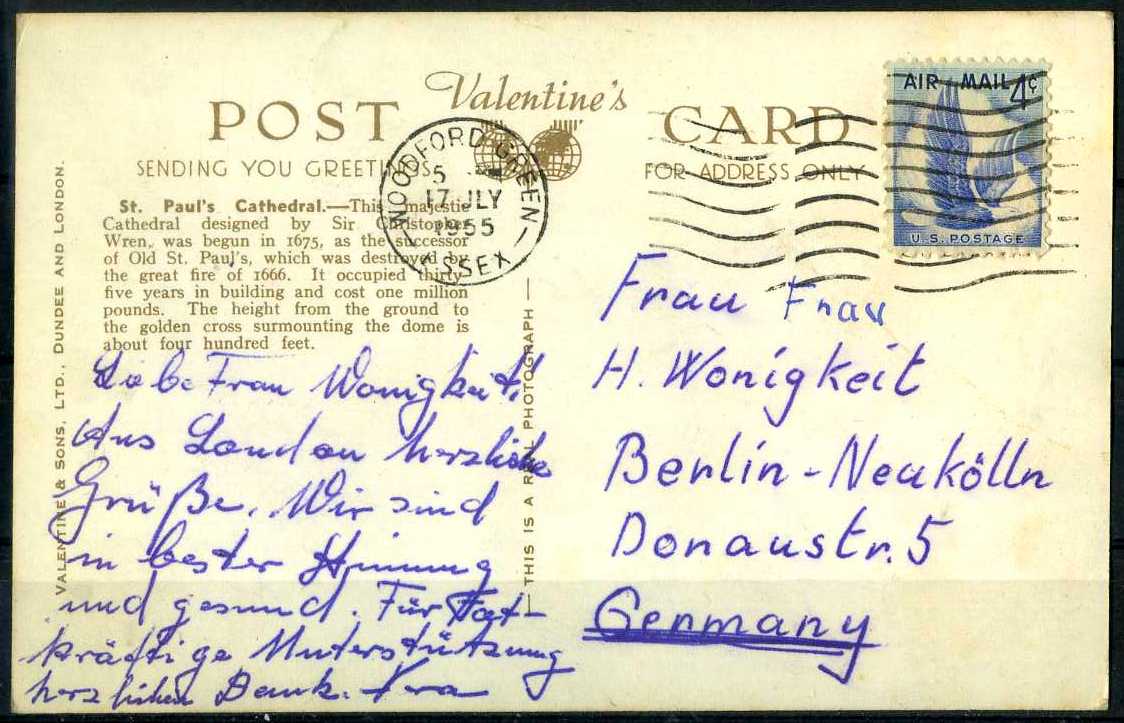 Valentine's
POST CARD
SENDING YOU GREETINGS.
FOR ADDRESS ONLY
St. Paul's Cathedral.—This majestic
Cathedral designed by Sir Christopher
Wren, was begun in 1675, as the successor
of Old St. Paul's, which was destroyed by
the great fire of 1666. It occupied thirty-
five years in building and cost one million
pounds. The height from the ground to
the golden cross surmounting the dome is
about four hundred feet.
VALENTINE & SONS, LTD., DUNDEE AND LONDON.
THIS IS A REAL PHOTOGRAPH
WOODFORD GREEN
5
17 JLY
1955
ESSEX
AIR MAIL 4¢
U.S. POSTAGE
Liebe Frau Wonigkeit!
Aus London herzliche
Grüße. Wir sind
in bester Stimmung
und gesund. Für Tat-
kräftige Unterstützung
herzlichen Dank.
Frau Frau
H. Wonigkeit
Berlin-Neukölln
Donaustr. 5
Germany